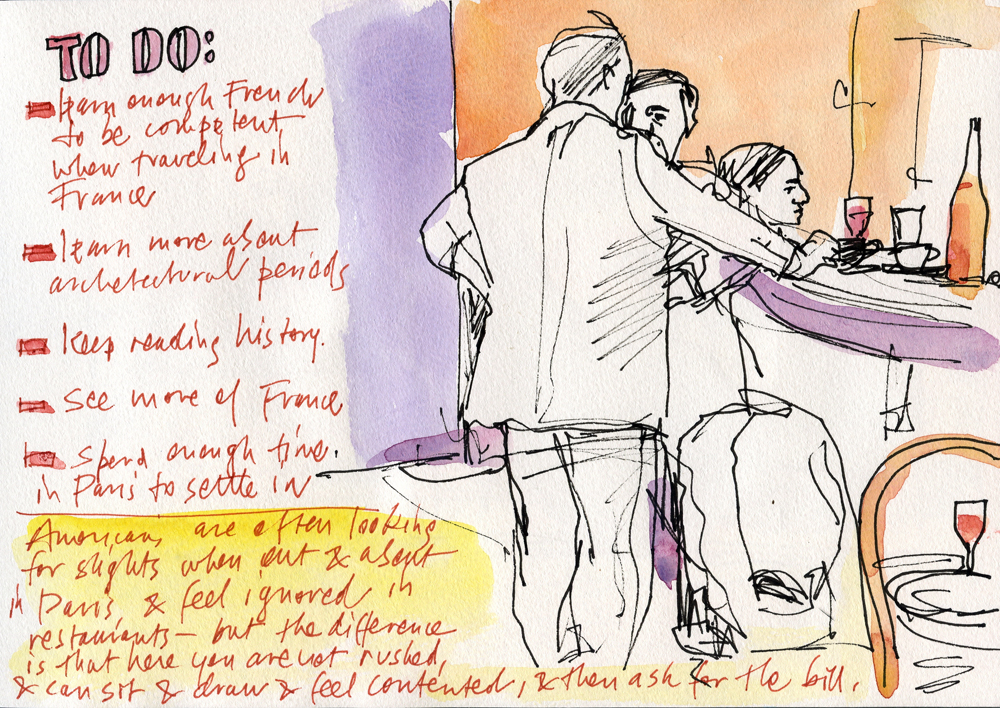 TO DO:
learn enough French
to be competent
when traveling in
France
learn more about
archetectural periods
Keep reading history.
See more of France
spend enough time.
in Paris to settle in
Americans are often looking
for slights when out & about
in Paris & feel ignored in
restaurants - but the difference
is that here you are not rushed,
& can sit & draw & feel contented, & then ask for the bill.